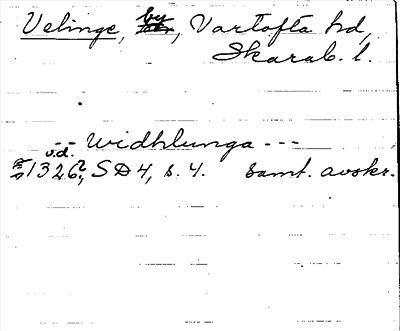 Velinge, by, Vartofta hd,
Skarab. l.
-- widhlunga ---
u.d.
1326?, SD 4, s. 4. samt. avskr.